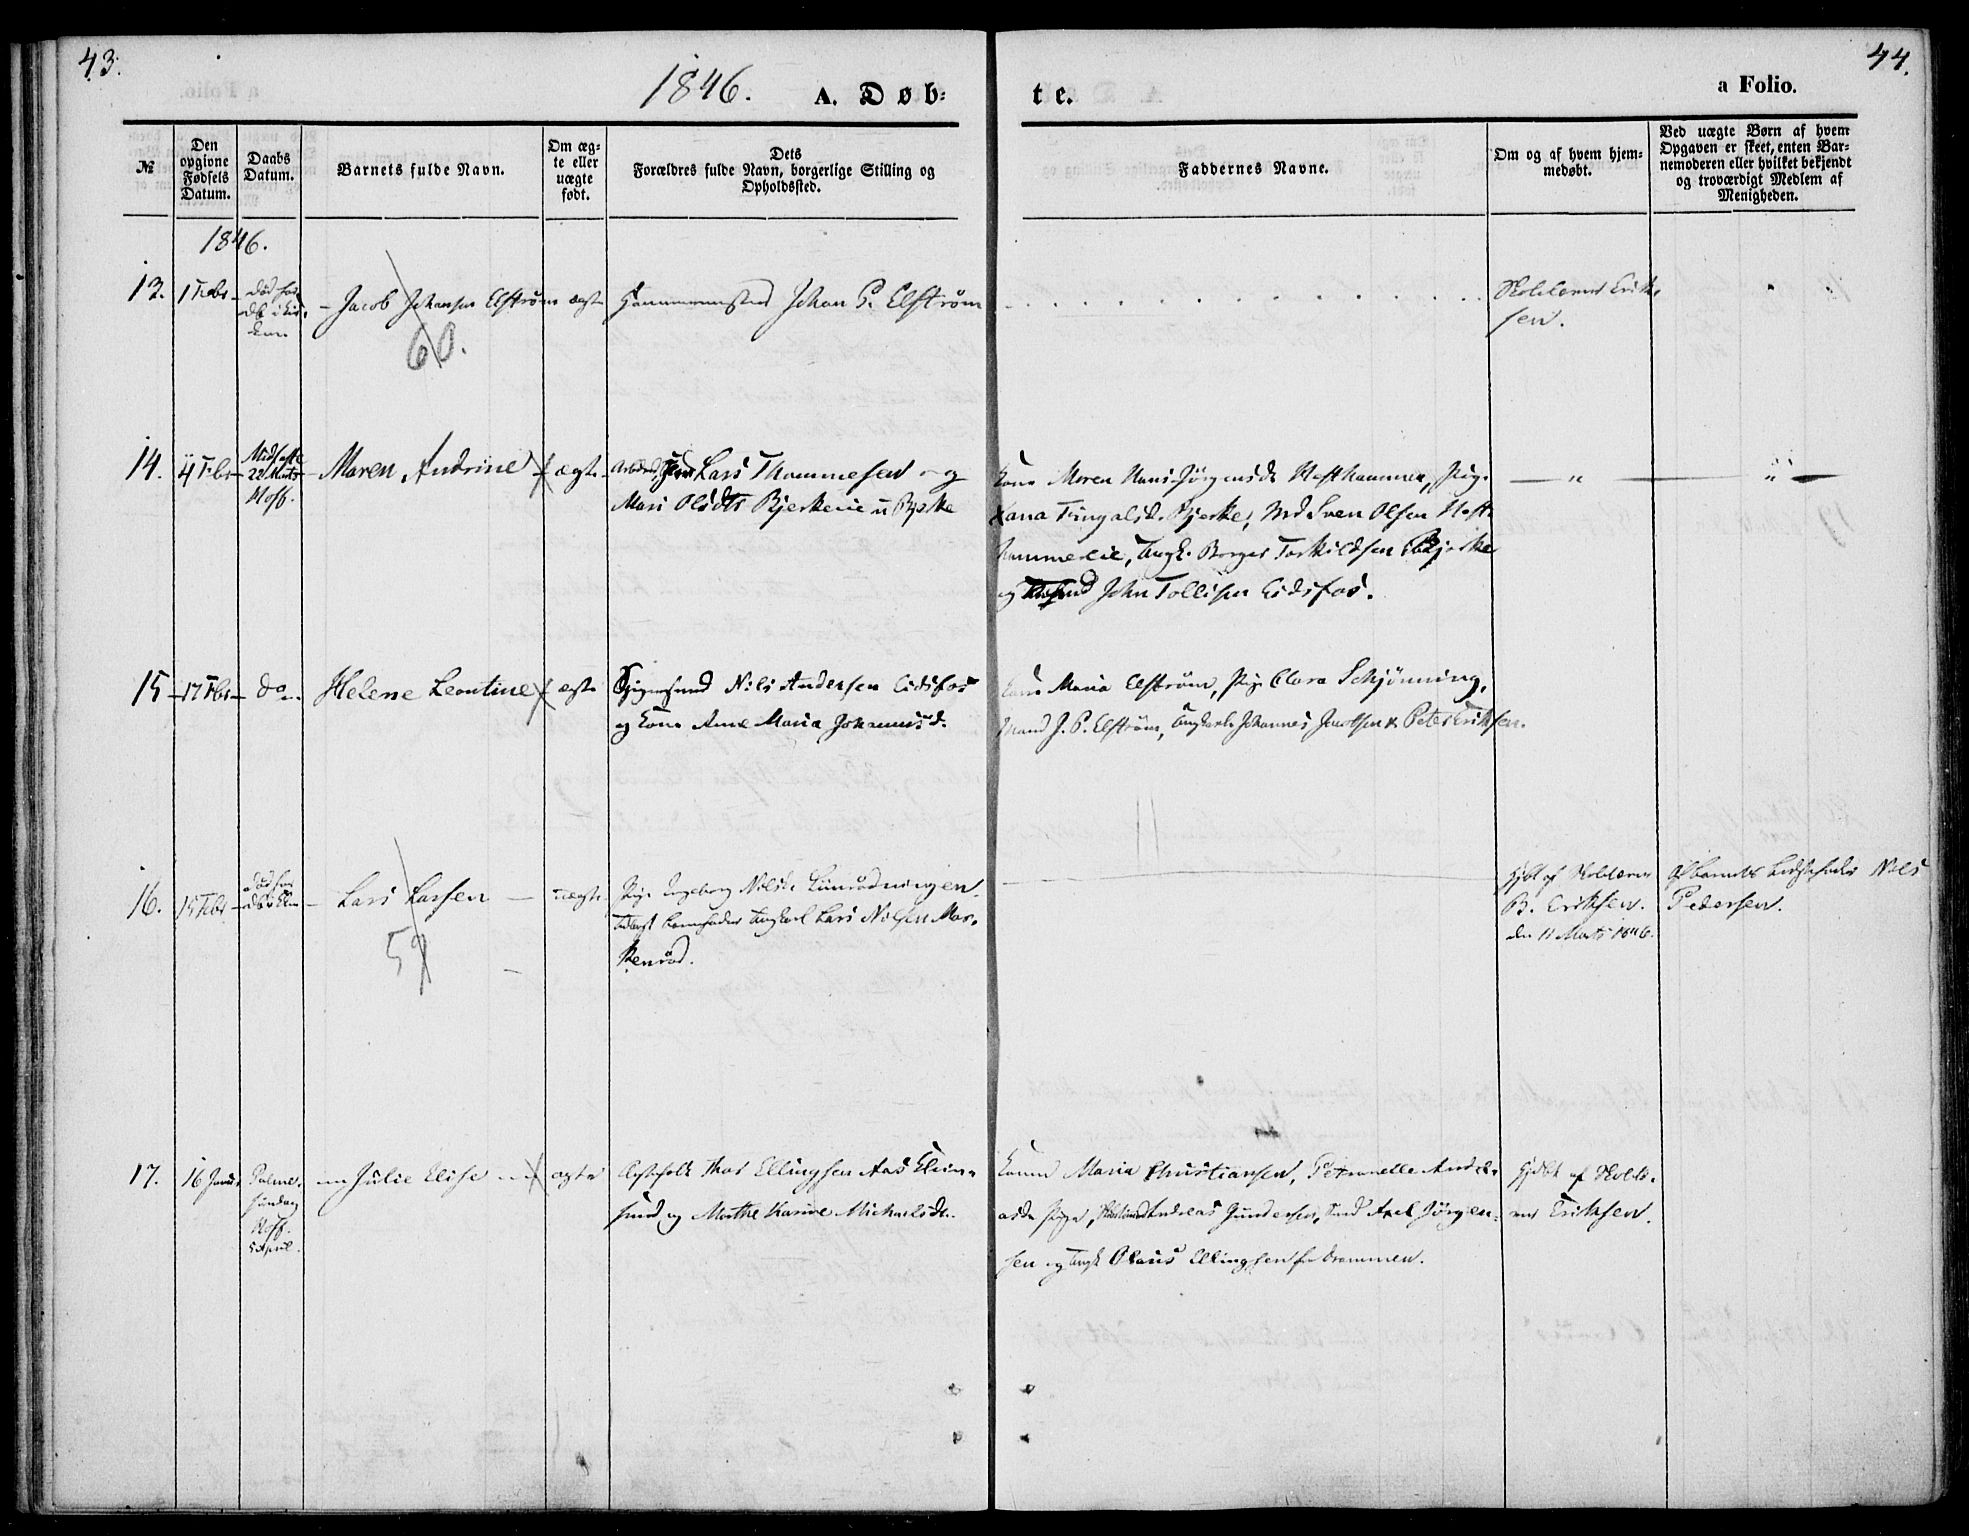 43.
44.
1846. A. Døb=
te.
a Folio.
№
Den opgivne Fødsels Datum.
Daabs Datum.
Barnets fulde Navn.
Om æg-te eller uægte født.
Dets Forældres fulde Navn, borgerlige Stilling og Opholdssted.
Faddernes Navne.
Om og af hvem hjem-medøbt.
Ved uægte Børn af hvem Opgaven er skeet, enten Bar-nemoderen eller hvilket bekjendt og troværdigt Medlem af Menigheden.
1846.
13. 1 Febr
Jacob Johansen Elfstrøm ægte
Johan P. Elfstrøm
Skolelærer Erik-
sen.
60.
14. 4 Febr
Midfaste
22 Marts
Hoff.
Maren Andrine ægte
Lars Thommesen og
Mari Olsdtr Bjerkeeie u Bjerke
Kone Maren Hans Jörgensdr Hefthammer, Pige
Fingalsdr. Bjerke, Md Sven Olsen Heft-
hammereie, Ungk. Borger Torkildsen Bjerke
og John Tollifsen Eidsfos.
15 17 Febr do
Helene Leontine ægte
Nils Andersen Eidsfos
og Kone Anne Maria Johannesd.
Kone Maria Elfstrøm, Pige Clara Schjönning,
Mand J. P. Elfstrøm, Ungkarle Johannes Jacobsen & Peter Eriksen.
16. 15 Febr
Lars Larsen uægte
Pige Ingeborg Nilsdr.
Udlagt Barnefader Ungkarl Lars Nielsen Mor-
kenröd.
Hjdbt af Skolelærer
B. Eriksen.
den 11 Marts 1846.
Af Barnets Bedstefader Nils
Pedersen.
59
17. 16 Januar
Palme-
søndag
Hoff.
5 April.
Julie Elise ægte
Thor Ellingsen Aas
og Marthe Karine Michaelsdr.
Konen Maria Christiansen, Petronelle Ander-
Pige, Andreas Gundersen, Axel Jörgen-
sen og Ungk Olaus Ellingsen fra Drammen.
Hjdbt af Skolelæ-
rer Eriksen.